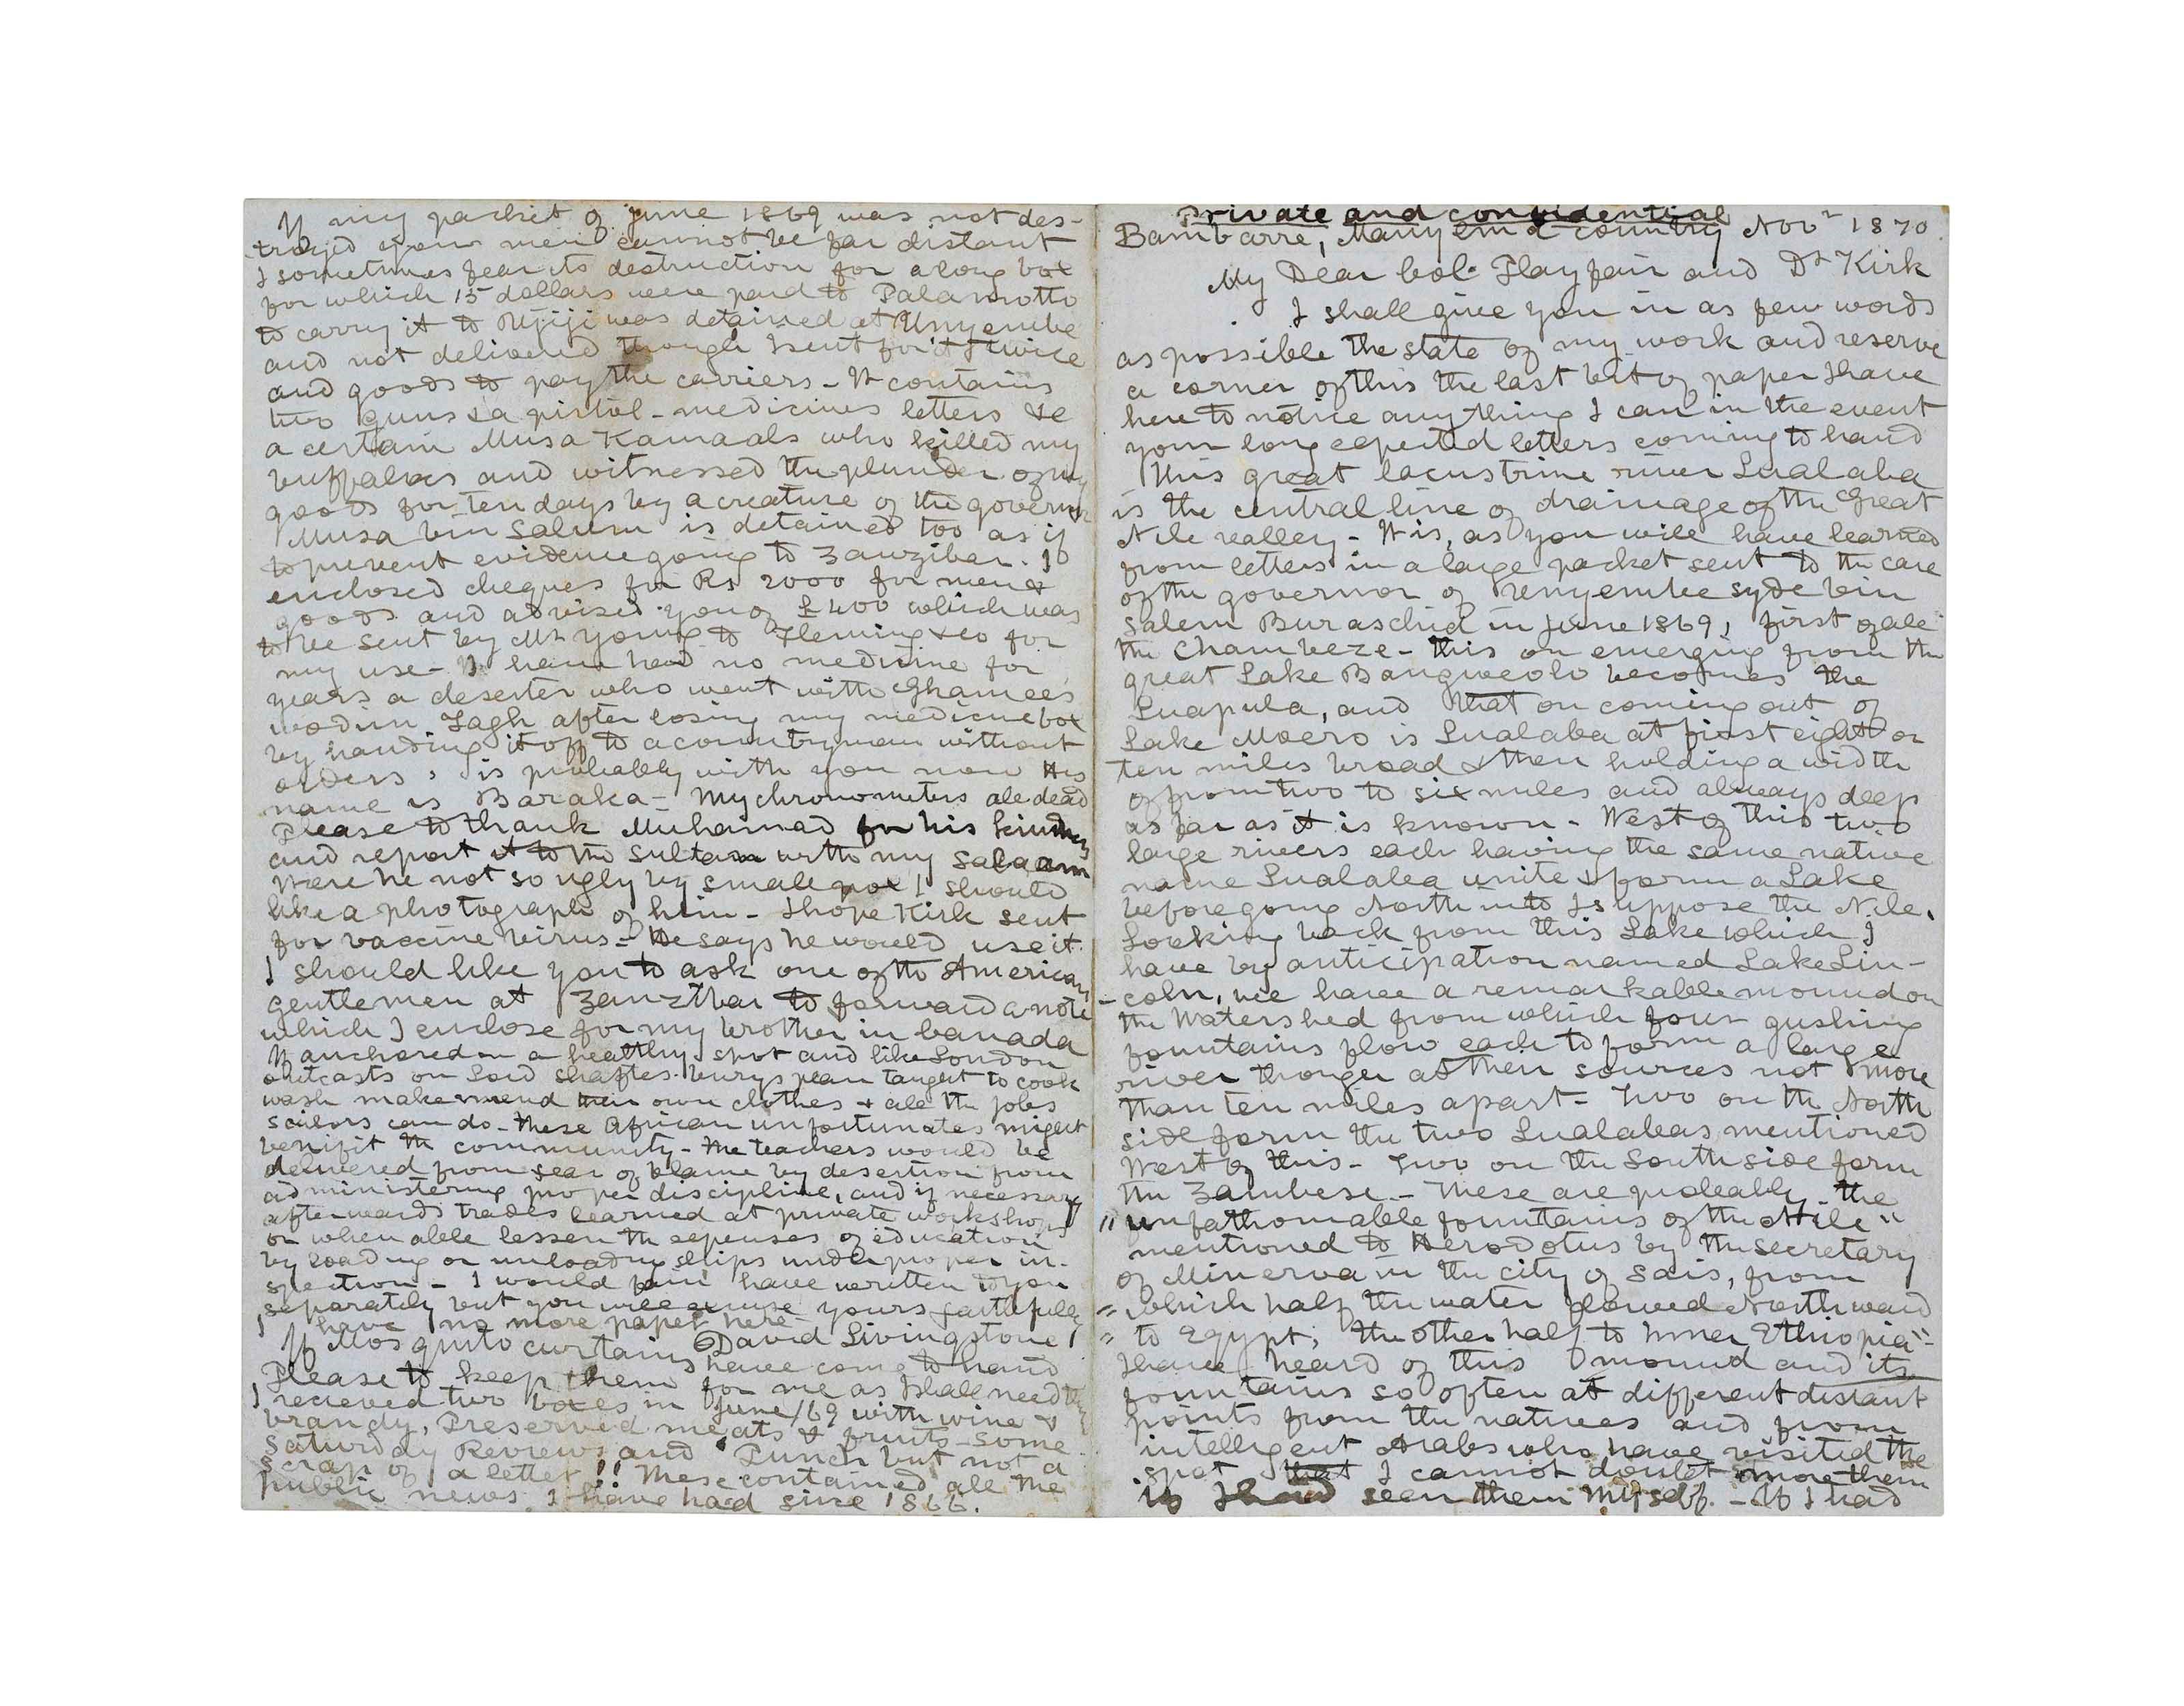 If my packet of June 1869 was not des-
troyed your men cannot be far distant
I sometimes fear its destruction for a long box
for which 15 dollars were paid to Palamotto
to carry it to Ujiji was detained at Unyembe
and not delivered though I sent for it twice
and goods to pay the carriers - It contains
two guns & a pistol - medicines letters &c
a certain Musa Kamaals who killed my
buffaloes and witnessed the plunder of my
goods for ten days by a creature of the governor
Musa bin Salum is detained too as if
to prevent evidence going to Zanzibar. I
enclosed cheques for Rs 2000 for men &
goods and advised you of £400 which was
to be sent by Mr Young to Fleming & co for
my use - I have had no medicine for
years a deserter who went with Ghamees
wodin Tagh after losing my medicine box
by handing it off to a countryman without
orders, is probably with you now His
name is Baraka - My chronometers all dead
Please to thank Muhamad for his kindness
and report it to the Sultan with my Salaam
Were he not so ugly by small pox I should
like a photograph of him - I hope Kirk sent
for vaccine virus - He says he would use it.
I should like you to ask one of the American
gentlemen at Zanzibar to forward a note
which I enclose for my brother in Canada
If anchored in a healthy spot and like London
outcasts on Lord Shaftesburys plan taught to cook
wash make & mend their own clothes & all the jobs
sailors can do - these African unfortunates might
benifit the community - The teachers would be
delivered from fear of blame by desertion from
administering proper discipline, and if necessary
afterwards trades learned at private workshops
or when able lessen the expenses of education
by loading or unloading ships under proper in-
spection - I would fain have written to you
separately but you will excuse yours faithfully
I have no more paper here - David Livingstone
If Mosquito curtains have come to hand
Please to keep them for me as I shall need them
I recieved two boxes in June/69 with wine &
brandy, Preserved meats & fruits - some
Saturday Reviews and Punch but not a
scrap of a letter!! These contained all the
public news I have had since 1866.
Private and confidential
Bambarre, Manyema country Novr 1870.
My Dear Col. Playfair and Dr Kirk
I shall give you in as few words
as possible the state of my work and reserve
a corner of this the last bit of paper I have
here to notice anything I can in the event
your long expected letters coming to hand
This great lacustrine river Lualaba
is the central line of drainage of the Great
Nile valley - It is, as you will have learned
from letters in a large packet sent to the care
of the governor of Unyembe Syde bin
Salem Buraschid in June 1869, first of all
the Chambeze - this on emerging from the
great Lake Bangweolo becomes the
Luapula, and that on coming out of
Lake Moero is Lualaba at first eight or
ten miles broad & then holding a width
of from two to six miles and always deep
as far as it is known - West of this two
large rivers each having the same native
name Lualaba unite & form a Lake
before going North into I suppose the Nile.
Looking back from this Lake which I
have by anticipation named Lake Lin-
-coln, we have a remarkable mound on
the Watershed from which four gushing
fountains flow each to form a large
river though at their sources not more
than ten miles apart - Two on the North
side form the two Lualabas mentioned
West of this - Two on the South side form
the Zambese - These are probably the
"unfathomable fountains of the Nile"
mentioned to Herodotus by the secretary
of Minerva in the city of Sais, from
"which half the water flowed Northward
"to Egypt; the other half to Inner Ethiopia" -
I have heard of this mound and its
fountains so often at different distant
points from the natives and from
intelligent Arabs who have visited the
spot that I cannot doubt more than
if I had seen them myself. - If I had